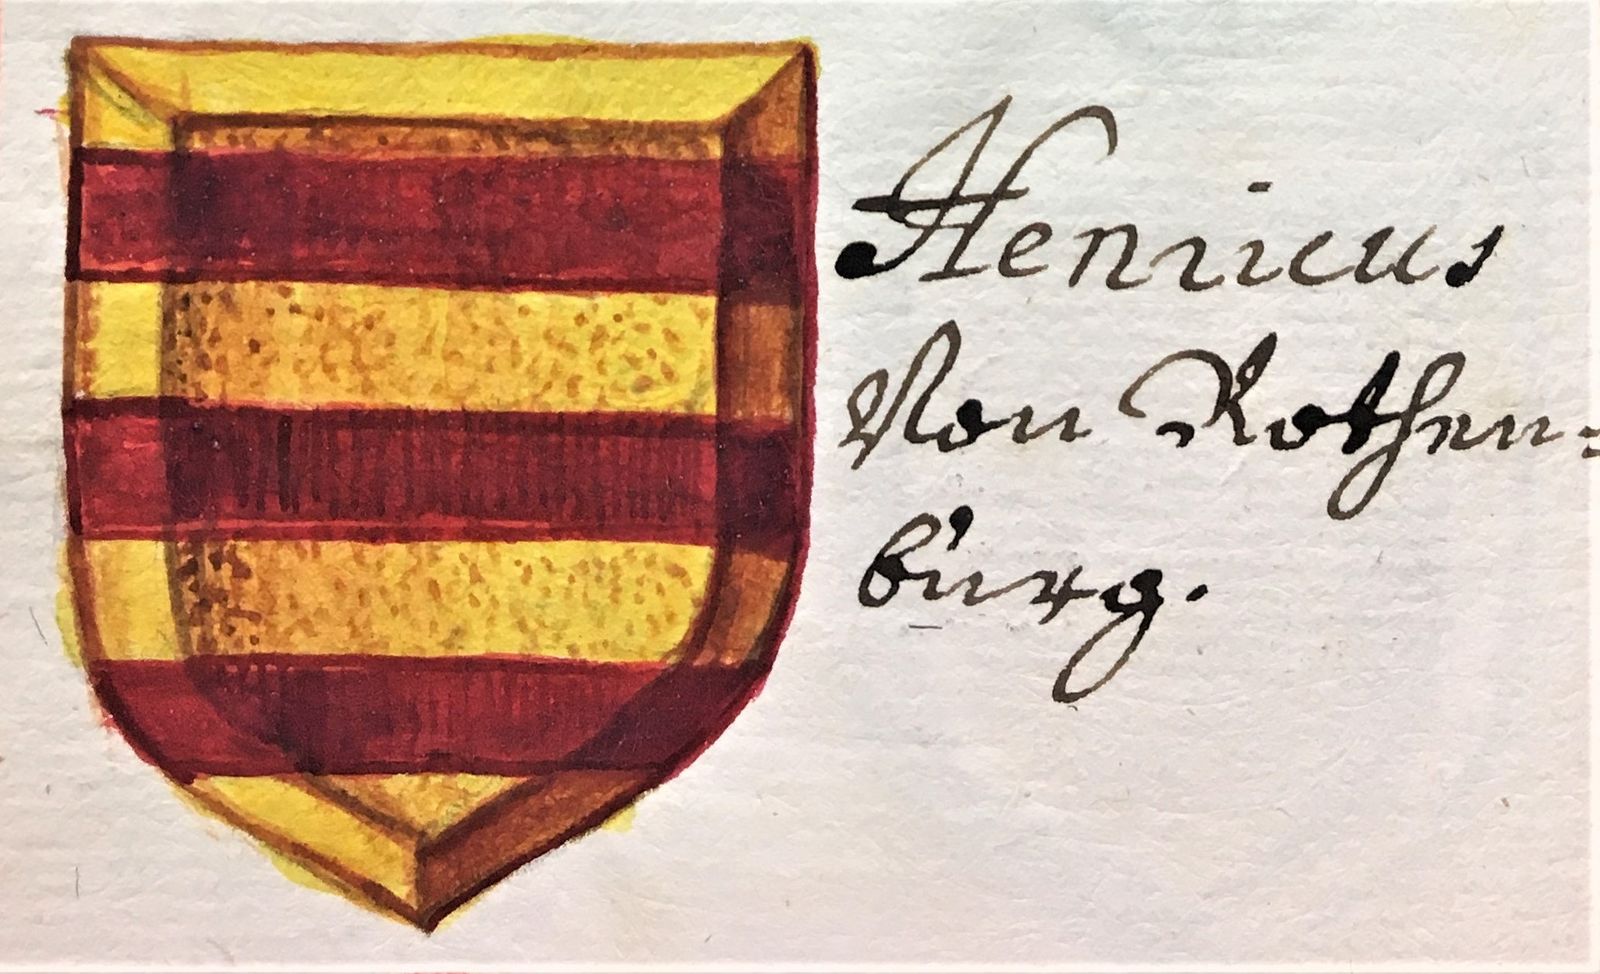 Henricus
Von Rothen=
burg.